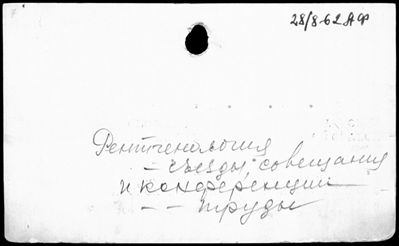 28/8-62 АФ
Рентгенология
— съезды, совещания
и конференции —
— — труды